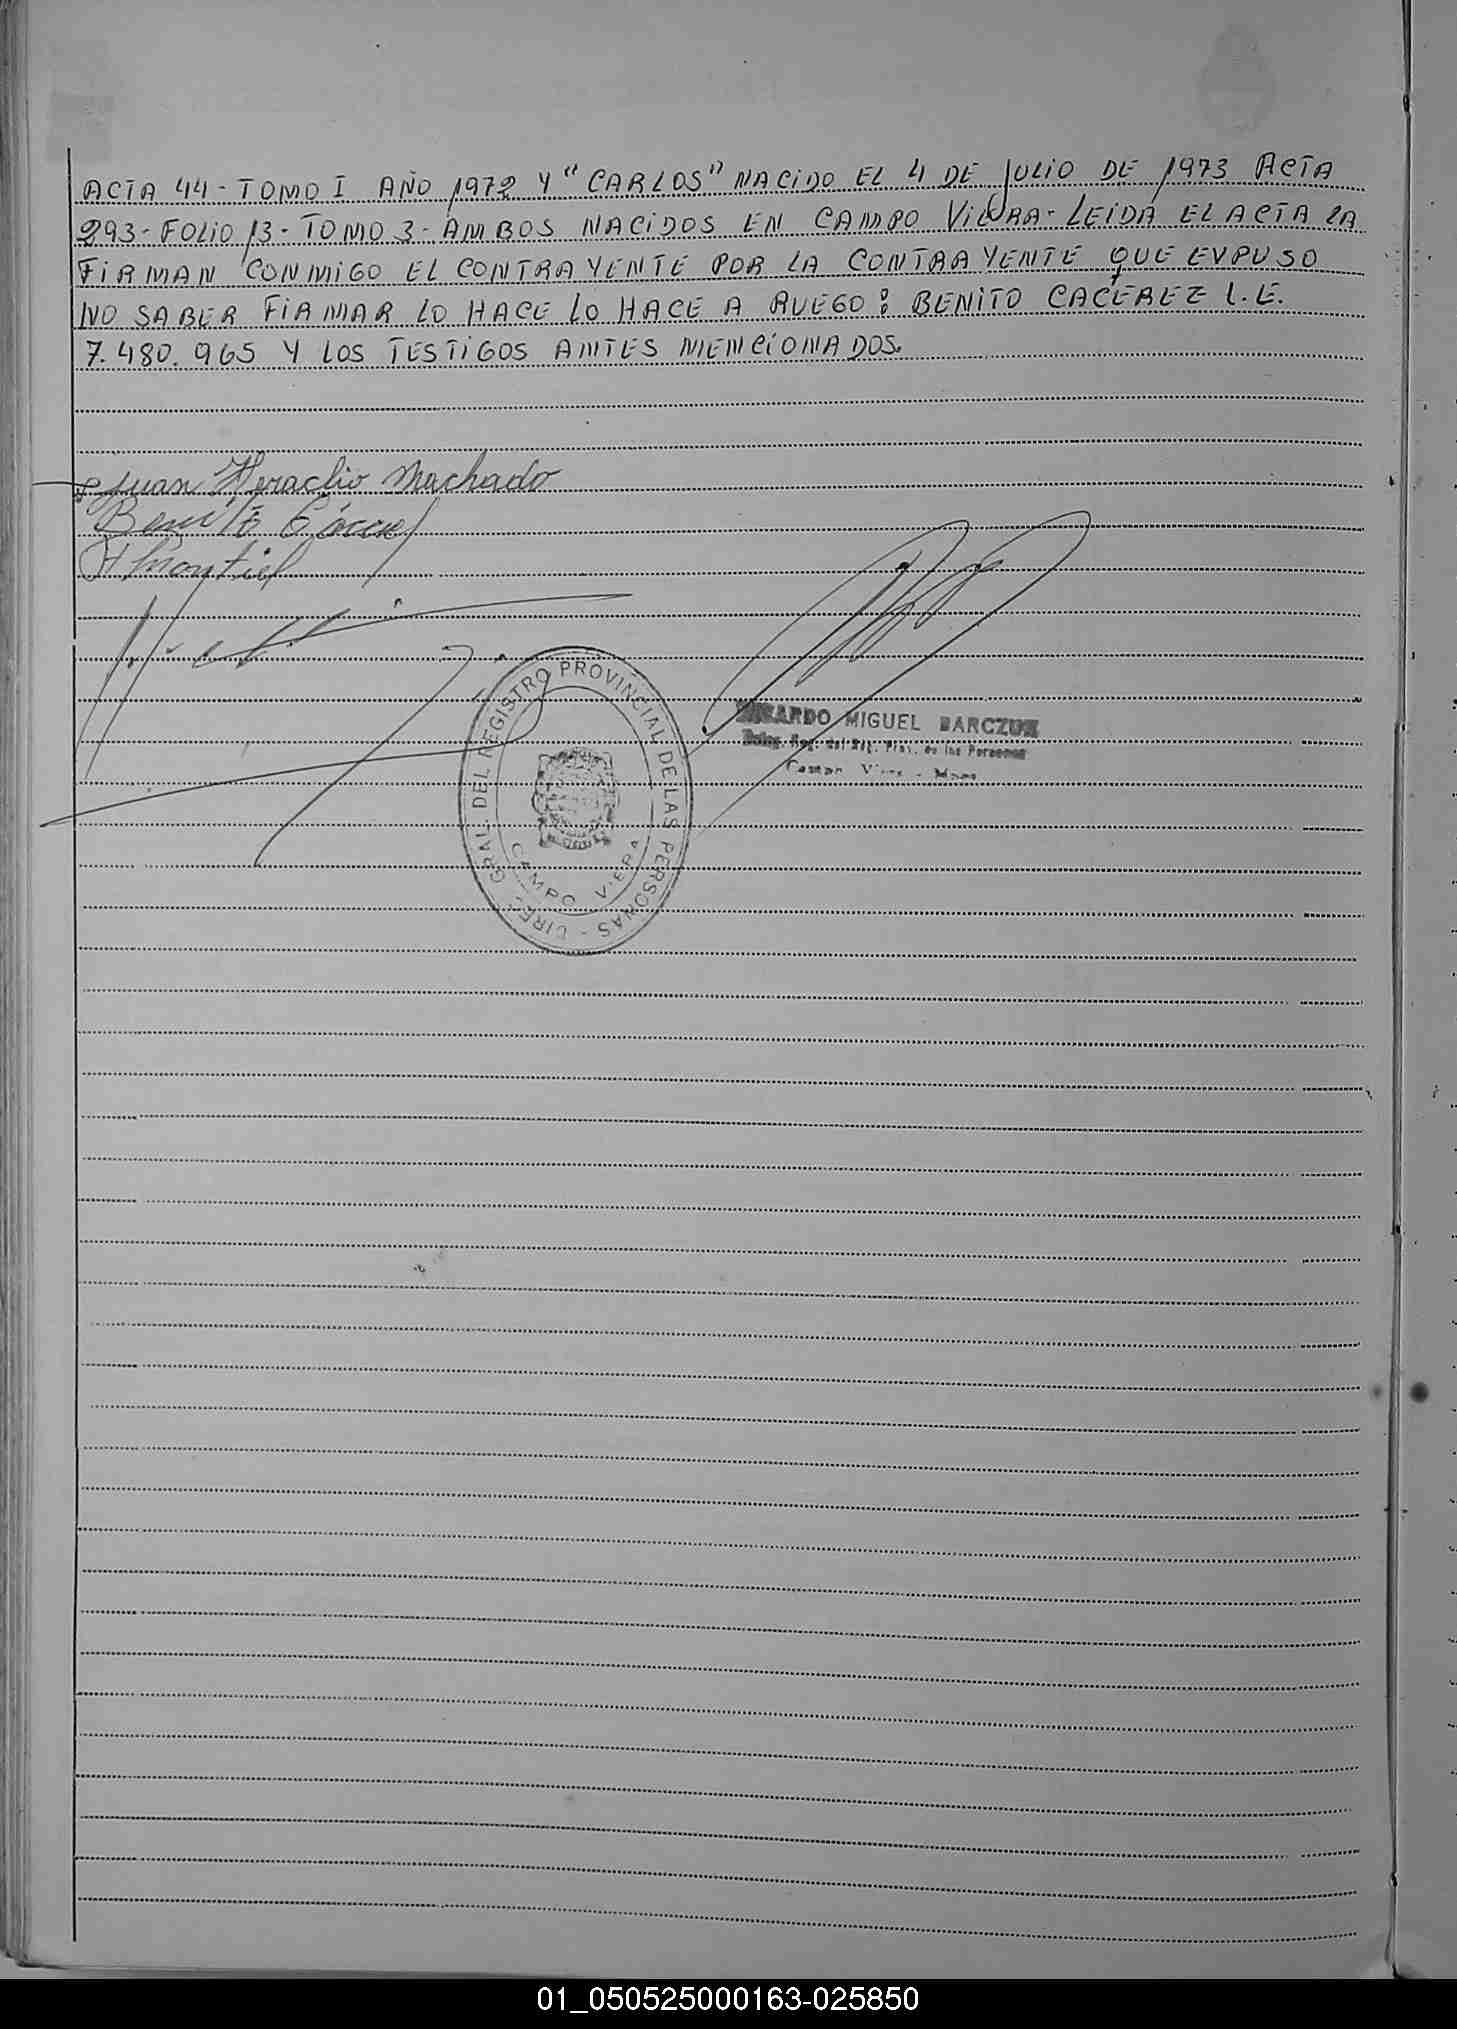 ACTA 44 - TOMO I AÑO 1972 Y "CARLOS" NACIDO EL 4 DE JULIO DE 1973 ACTA
293 - FOLIO 13 - TOMO 3 - AMBOS NACIDOS EN CAMPO VIERA - LEIDA EL ACTA LA
FIRMAN CONMIGO EL CONTRAYENTE POR LA CONTRAYENTE QUE EVPUSO
NO SABER FIRMAR LO HACE LO HACE A RUEGO: BENITO CACEREZ L.E.
7.480.965 Y LOS TESTIGOS ANTES MENCIONADOS.
Juan Heraclio Machado
Benito
Montiel
DIREC. GRAL. DEL REGISTRO PROVINCIAL DE LAS PERSONAS -
CAMPO VIERA
RICARDO MIGUEL BARCZUK
Deleg. Reg. del Reg. Prov. de las Personas
Campo Viera - Mnes
01_050525000163-025850